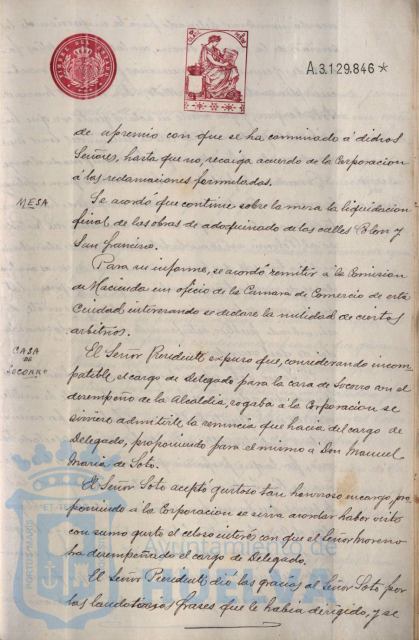 A.3.129.846*
de apremio con que se ha conminado á dichos
Señores, hasta que no, recaiga acuerdo de la Corporacion
á las reclamaciones formuladas.
MESA
Se acordó que continue sobre la mesa la liquidacion
final de las obras de adoquinado de las calles Colon y
San Francisco.
Para su informe, se acordó remitir á la Comision
de Hacienda un oficio de la Camara de Comercio de esta
Ciudad interesando se declare la nulidad de ciertos
arbitrios.
CASA
DE
SOCORRO
El Señor Presidente expuso que, considerando incom-
patible, el cargo de Delegado para la casa de Socorro con el
desempeño de la Alcaldia, rogaba á la Corporacion se
sirviere admitirle la renuncia que hacia del cargo de
Delegado, proponiendo para el mismo á Don Manuel
Maria de Soto.
El Señor Soto aceptó gustoso tan honroso encargo, pro-
poniendo á la Corporacion se sirva acordar haber visto
con sumo gusto el celoso interés con que el Señor Moreno
ha desempeñado el cargo de Delegado.
El Señor Presidente, dió las gracias al Señor Soto por
las laudatorias frases que le habia dirigido, y se
HUELVA